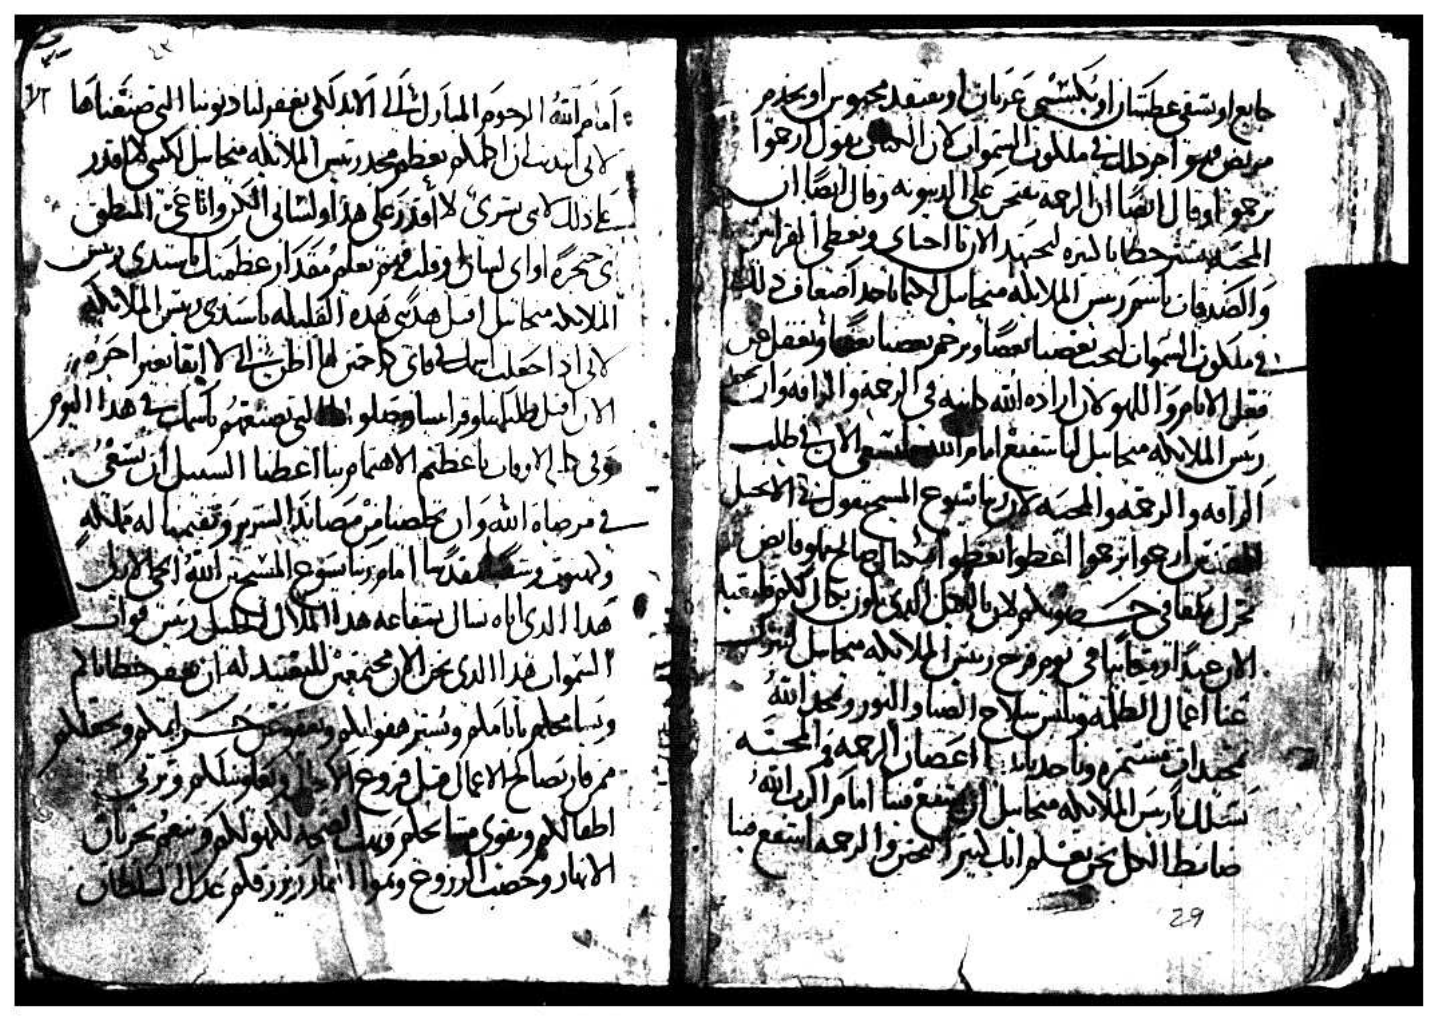 جايع او يسقى عطشان او يكتسى عريان او يفتقد محبوس او يخدم
مريض فهو اجر ذلك فى ملكوت السموات لان الكتاب يقول ارحموا
ترحموا وقال ايضا ان الرحمه تفتخر على الدينونه وقال ايضا ان
المحبه تستر خطايا كتيره لنجتهد الان يا احباى ونعطى القرابين
والصدقات باسم ريس الملايكه ميخاييل لكيما ناخد اضعاف ذلك
فى ملكوت السموات لنحب بعضنا بعضا ونرحم بعضنا بعضا ونغفل عن
فعل الاتام واللهو لان اراده الله فى الرحمه والرافه وان
ريس الملايكه ميخاييل لنا شفيع امام الله الان فى طلب
الرافه والرحمه والمحبه لان ربنا يسوع المسيح يقول فى الانجيل
المقدس ارحموا ترحموا اعطوا تعطوا صالح فايض
الان عيدا روحانيا فى يوم فرح ريس الملايكه ميخاييل لنترك
عنا اعمال الظلمه ونلبس سلاح الضيا والنور ونمجد الله
بتمجيدات مستمره وناخد بايدينا اغصان الرحمه والمحبه
نسلك يا ريس الملايكه ميخاييل ان تشفع فينا امام الرب اله
ضابط الكل نحن نعلم انك كتير التحنن والرحمه اشفع فينا
29
امام الله الرحوم المبارك الى الابد لكى يغفر لنا دنوبنا التى صنعناها
لانى ابتديت ان اكلمكم بعظم مجد ريس الملايكه ميخاييل لكننى لا اقدر
على ذلك لانى بشرى لا اقدر على هذا ولسانى الكن وانا عى المنطق
اى حنجره او اى لسان او قلب فهم يعلم مقدار عظمتك يا سيدى ريس
الملايكه ميخاييل اقبل هديتى هذه القليله يا سيدى ريس الملايكه
لانى اذا جعلت اسمك فى فاى اظن انى لا ابقا بغير اجره
الان اقبل طلباتنا وقرابيننا وصلواتنا التى نصنعهم باسمك فى هذا اليوم
وفى كل الاوقات يا عظيم الاهتمام بنا اعطنا السبيل ان نسعى
فى مرضاه الله وان يخلصنا من مصايد الشرير وتقيمنا له مملكه
وكهنوت وشعبا مقدسا امام ربنا يسوع المسيح ابن الله الحى الازلى
هذا الذى اياه نسال بشفاعه هذا الملاك الجليل ريس قوات
السموات هذا الذى نحن الان مجتمعين للتعييد له ان يغفر خطاياكم
ويسامحكم باتامكم ويستر هفواتكم ويعفو عن جسراتكم ويجعلكم
ممن فاز بصالح الاعمال قبل فروغ الاجال ونياتكم ويربى
اطفالكم ويقوى شبابكم ويهب الصحه لكهولكم وينعم بجريان
الانهار وخصب الزروع ونموا الثمار ويرزقكم عدل السلطان